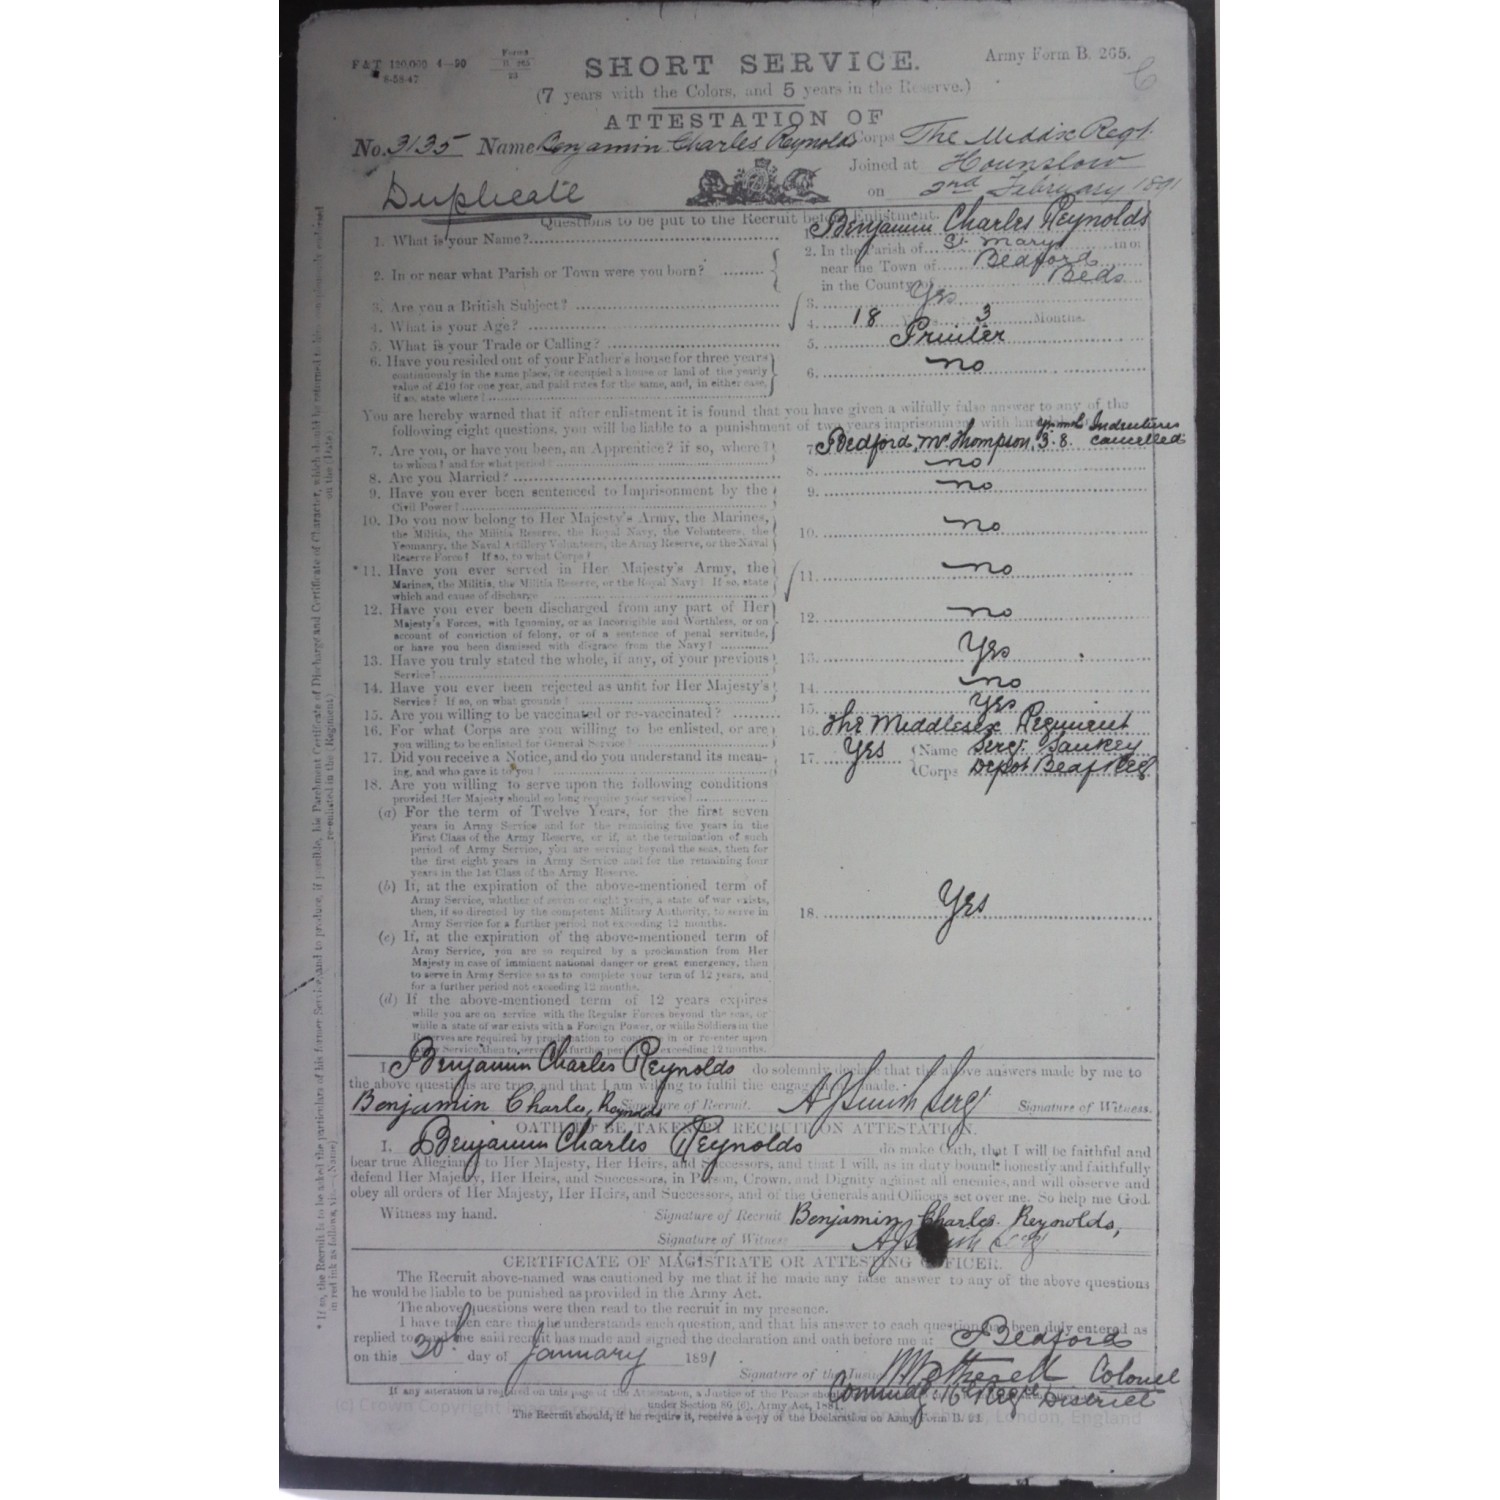 F & T 120,000 4—90
8-58-47
Forms
B. 265
23
SHORT SERVICE.
Army Form B. 265.
(7 years with the Colors, and 5 years in the Reserve.)
ATTESTATION OF
No. 3135 Name Benjamin Charles Reynolds Corps The Middx Regt.
Joined at Hounslow
Duplicate
on 2nd February 1891
Questions to be put to the Recruit before Enlistment.
1. What is your Name? 1. Benjamin Charles Reynolds
2. In or near what Parish or Town were you born? 2. In the Parish of St Marys in or
near the Town of Bedford
in the County of Beds
3. Are you a British Subject? 3. Yes
4. What is your Age? 4. 18 Years 3 Months.
5. What is your Trade or Calling? 5. Printer
6. Have you resided out of your Father's house for three years
continuously in the same place, or occupied a house or land of the yearly
value of £10 for one year, and paid rates for the same, and, in either case,
if so, state where? 6. no
You are hereby warned that if after enlistment it is found that you have given a wilfully false answer to any of the
following eight questions, you will be liable to a punishment of two years imprisonment with hard
7. Are you, or have you been, an Apprentice? if so, where?
to whom? and for what period? 7. Bedford, Mr Thompson, yrs mos 3. 8. Indentures cancelled
8. Are you Married? 8. no
9. Have you ever been sentenced to Imprisonment by the
Civil Power? 9. no
10. Do you now belong to Her Majesty's Army, the Marines,
the Militia, the Militia Reserve, the Royal Navy, the Volunteers, the
Yeomanry, the Naval Artillery Volunteers, the Army Reserve, or the Naval
Reserve Force? If so, to what Corps? 10. no
*11. Have you ever served in Her Majesty's Army, the
Marines, the Militia, the Militia Reserve, or the Royal Navy? If so, state
which and cause of discharge 11. no
12. Have you ever been discharged from any part of Her
Majesty's Forces, with Ignominy, or as Incorrigible and Worthless, or on
account of conviction of felony, or of a sentence of penal servitude,
or have you been dismissed with disgrace from the Navy? 12. no
13. Have you truly stated the whole, if any, of your previous
Service? 13. Yes
14. Have you ever been rejected as unfit for Her Majesty's
Service? If so, on what grounds? 14. no
15. Are you willing to be vaccinated or re-vaccinated? 15. Yes
16. For what Corps are you willing to be enlisted, or are
you willing to be enlisted for General Service? 16. The Middlesex Regiment
17. Did you receive a Notice, and do you understand its mean-
ing, and who gave it to you? 17. Yes Name Sergt. Sankey
Corps Depot Bedf Reg.
18. Are you willing to serve upon the following conditions
provided Her Majesty should so long require your service?
(a) For the term of Twelve Years, for the first seven
years in Army Service and for the remaining five years in the
First Class of the Army Reserve, or if, at the termination of such
period of Army Service, you are serving beyond the seas, then for
the first eight years in Army Service and for the remaining four
years in the 1st Class of the Army Reserve.
(b) If, at the expiration of the above-mentioned term of
Army Service, whether of seven or eight years, a state of war exists,
then, if so directed by the competent Military Authority, to serve in
Army Service for a further period not exceeding 12 months.
18. Yes
(c) If, at the expiration of the above-mentioned term of
Army Service, you are so required by a proclamation from Her
Majesty in case of imminent national danger or great emergency, then
to serve in Army Service so as to complete your term of 12 years, and
for a further period not exceeding 12 months.
(d) If the above-mentioned term of 12 years expires
while you are on service with the Regular Forces beyond the seas, or
while a state of war exists with a Foreign Power, or while Soldiers in the
Reserves are required by proclamation to continue in or re-enter upon
Army Service, then to serve for a further period not exceeding 12 months.
I Benjamin Charles Reynolds do solemnly declare that the above answers made by me to
the above questions are true, and that I am willing to fulfil the engagements made.
Benjamin Charles, Reynolds Signature of Recruit. Sergt Signature of Witness.
OATH TO BE TAKEN BY RECRUIT ON ATTESTATION.
I, Benjamin Charles Reynolds do make Oath, that I will be faithful and
bear true Allegiance to Her Majesty, Her Heirs, and Successors, and that I will, as in duty bound, honestly and faithfully
defend Her Majesty, Her Heirs, and Successors, in Person, Crown, and Dignity against all enemies, and will observe and
obey all orders of Her Majesty, Her Heirs, and Successors, and of the Generals and Officers set over me. So help me God.
Witness my hand. Signature of Recruit Benjamin Charles. Reynolds,
Signature of Witness
CERTIFICATE OF MAGISTRATE OR ATTESTING OFFICER.
The Recruit above-named was cautioned by me that if he made any false answer to any of the above questions
he would be liable to be punished as provided in the Army Act.
The above questions were then read to the recruit in my presence.
I have taken care that he understands each question, and that his answer to each question has been duly entered as
replied to, and the said recruit has made and signed the declaration and oath before me at Bedford
on this 30th day of January 1891
Signature of the Justice Colonel
Commdg: 16th Regtl District
If any alteration is required on this page of the Attestation, a Justice of the Peace
under Section 80 (6), Army Act, 1881.
The Recruit should, if he require it, receive a copy of the Declaration on Army Form B. 21
* If so, the Recruit is to be asked the particulars of his former Service, and to produce, if possible, his Parchment Certificate of Discharge and Certificate of Character, which should be returned to him conspicuously endorsed
in red ink as follows, viz.—(Name) re-enlisted in the (Regiment) on the (Date)